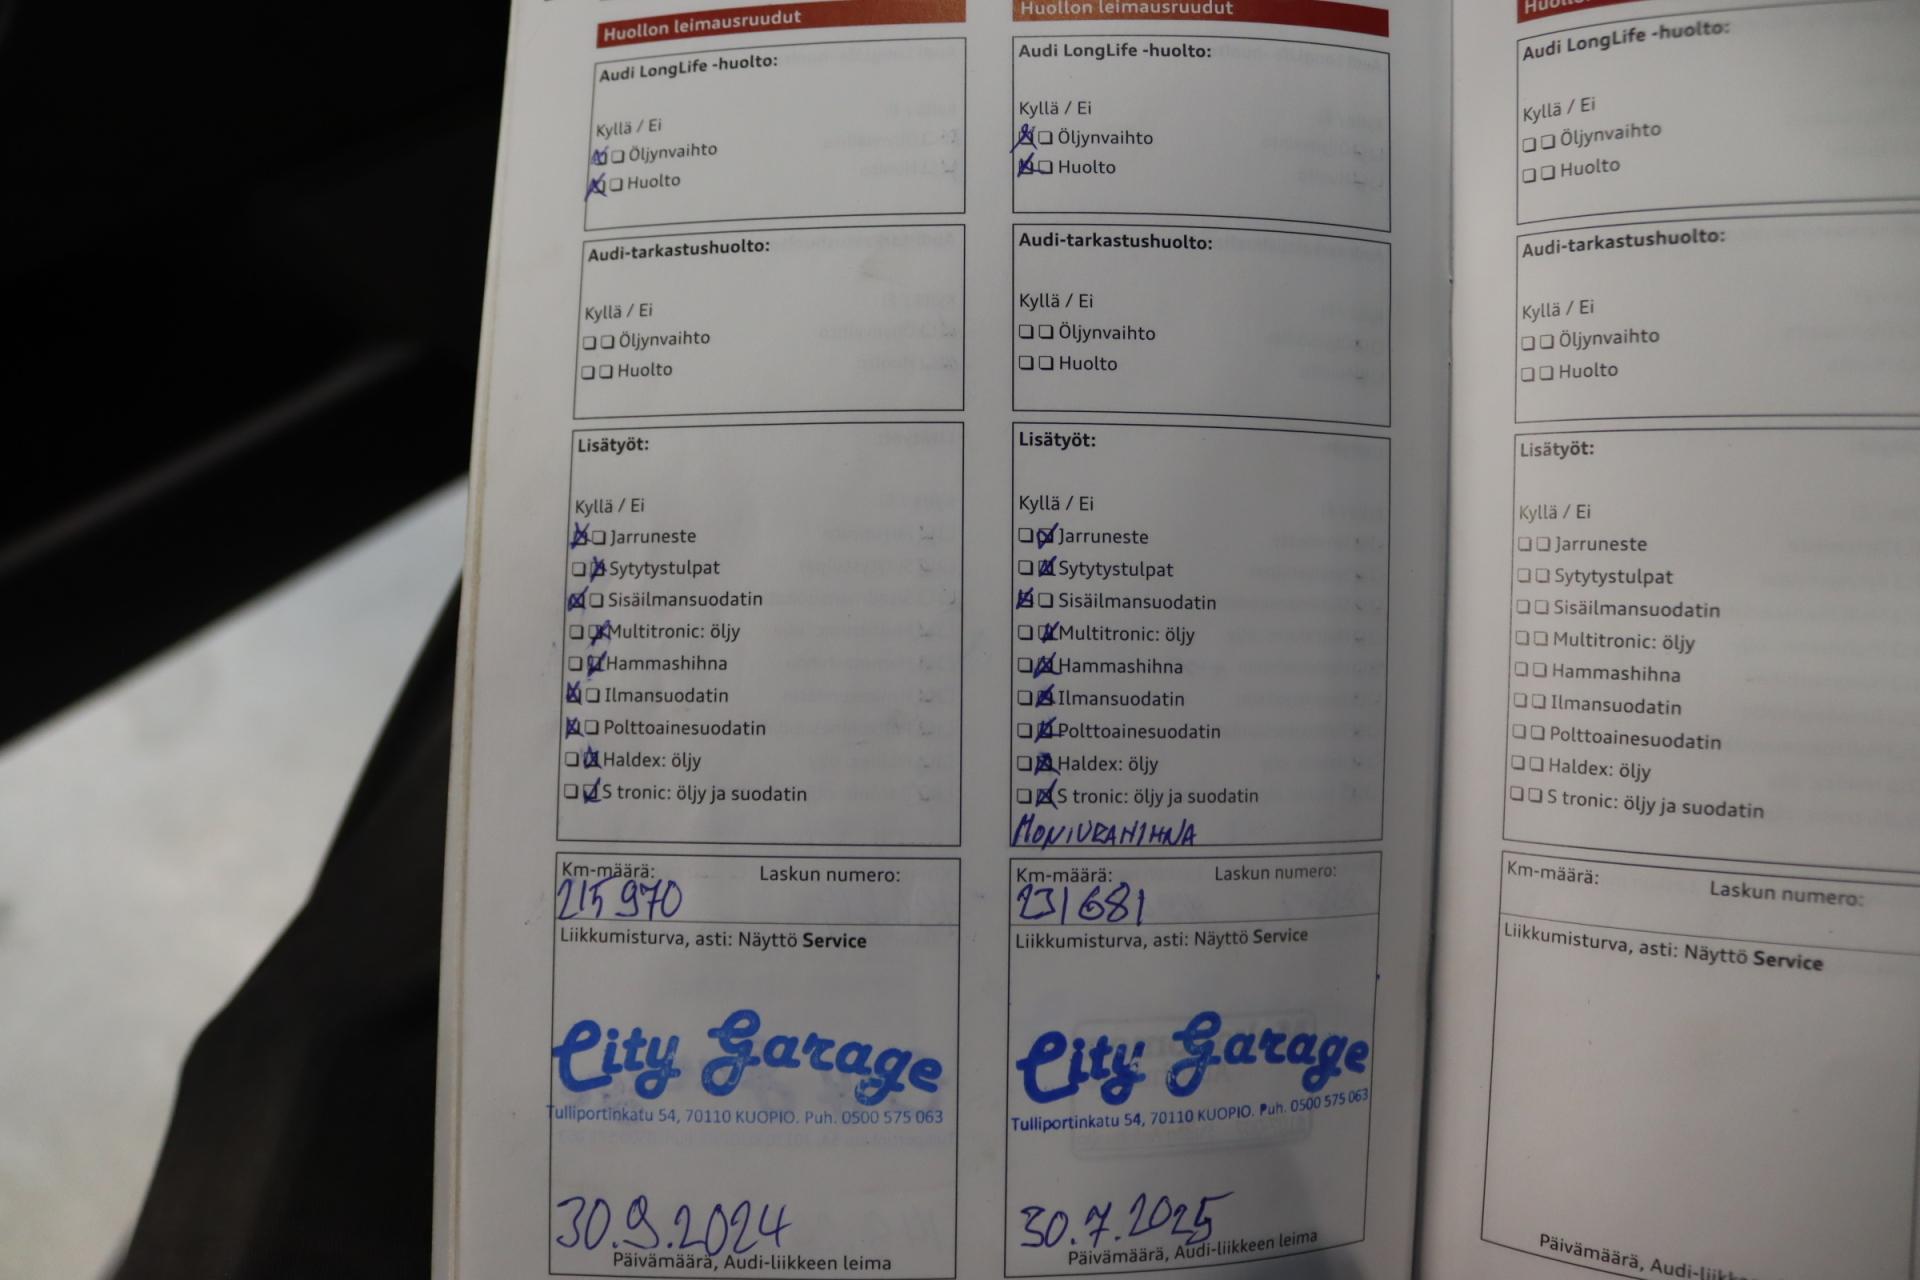 Huollon leimausruudut
Audi LongLife -huolto:
Kyllä / Ei
Öljynvaihto
Huolto
Audi-tarkastushuolto:
Kyllä / Ei
Öljynvaihto
Huolto
Lisätyöt:
Kyllä / Ei
Jarruneste
Sytytystulpat
Sisäilmansuodatin
Multitronic: öljy
Hammashihna
Ilmansuodatin
Polttoainesuodatin
Haldex: öljy
S tronic: öljy ja suodatin
Km-määrä: Laskun numero:
215 970
Liikkumisturva, asti: Näyttö Service
City Garage
Tulliportinkatu 54, 70110 KUOPIO. Puh. 0500 575 063
30.9.2024
Päivämäärä, Audi-liikkeen leima
Huollon leimausruudut
Audi LongLife -huolto:
Kyllä / Ei
Öljynvaihto
Huolto
Audi-tarkastushuolto:
Kyllä / Ei
Öljynvaihto
Huolto
Lisätyöt:
Kyllä / Ei
Jarruneste
Sytytystulpat
Sisäilmansuodatin
Multitronic: öljy
Hammashihna
Ilmansuodatin
Polttoainesuodatin
Haldex: öljy
S tronic: öljy ja suodatin
MONIURAHIHNA
Km-määrä: Laskun numero:
231681
Liikkumisturva, asti: Näyttö Service
City Garage
Tulliportinkatu 54, 70110 KUOPIO. Puh. 0500 575 063
30.7.2025
Päivämäärä, Audi-liikkeen leima
Audi LongLife -huolto:
Kyllä / Ei
Öljynvaihto
Huolto
Audi-tarkastushuolto:
Kyllä / Ei
Öljynvaihto
Huolto
Lisätyöt:
Kyllä / Ei
Jarruneste
Sytytystulpat
Sisäilmansuodatin
Multitronic: öljy
Hammashihna
Ilmansuodatin
Polttoainesuodatin
Haldex: öljy
S tronic: öljy ja suodatin
Km-määrä: Laskun numero:
Liikkumisturva, asti: Näyttö Service
Päivämäärä, Audi-liikkeen